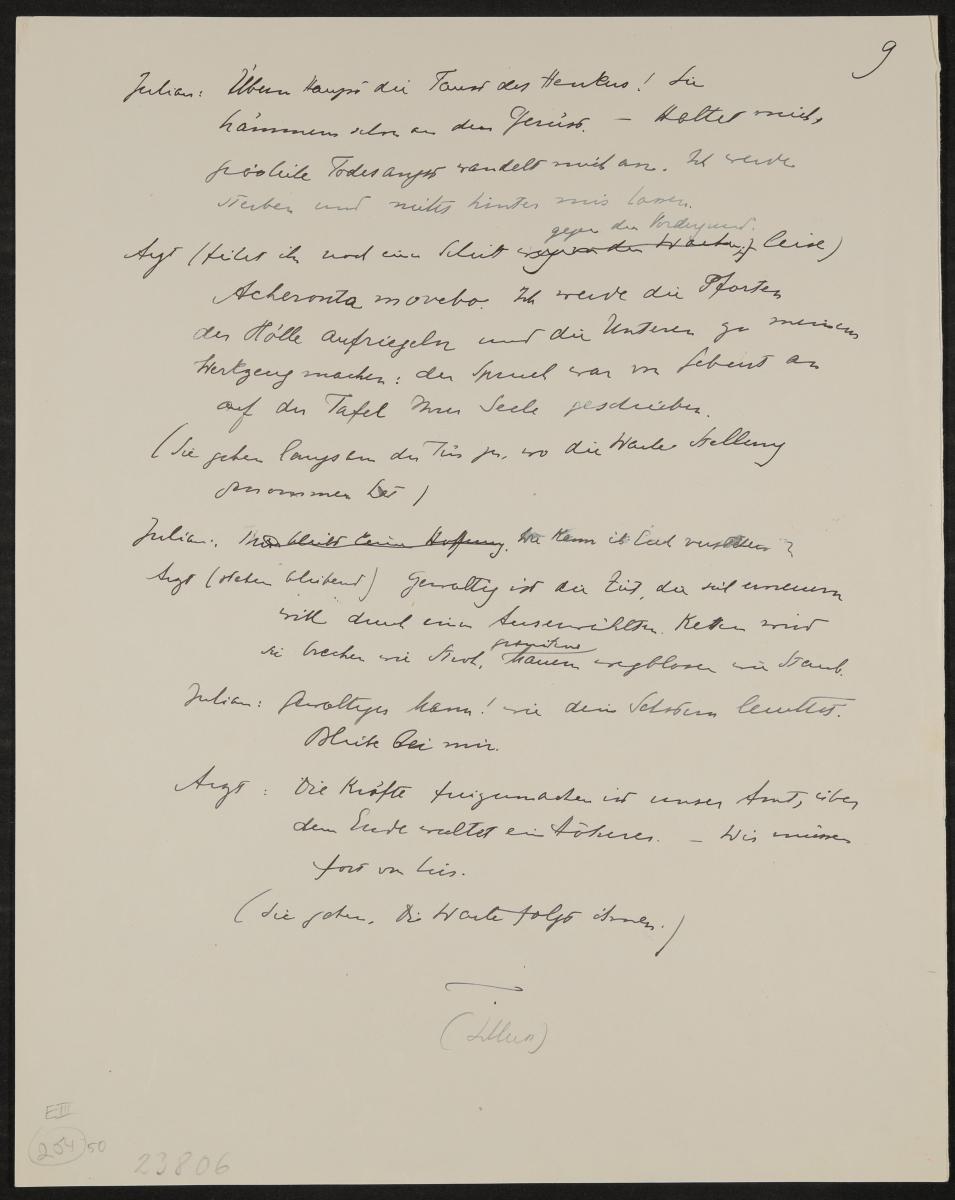 9
Julian: Überm Haupt die Faust des Henkers! Sie
hämmern schon an dem Gerüst. – Haltet mich,
gräßliche Todesangst wandelt mich an. Ich werde
sterben und nichts hinter mir lassen.
gegen den Vordergrund.
Arzt (führt ihn noch einen Schritt gegen den leise)
Acheronta movebo. Ich werde die Pforten
der Hölle aufriegeln und die Unteren zu meinem
Werkzeug machen: der Spruch war von Geburt an
auf der Tafel Ihrer Seele geschrieben.
(Sie gehen langsam der Tür zu, wo die Wache Stellung
genommen hat)
Julian: Mir bleibt keine Hoffnung. Wie kann ich Euch verstehen?
Arzt (stehen bleibend) Gewaltig ist die Zeit, die sich erneuern
will durch einen Auserwählten. Ketten wird
granitene
sie brechen wie Stroh, Mauern wegblasen wie Staub.
Julian: Gewaltiger Mann! wie dein leuchtet.
Bleibe bei mir.
Arzt: Die Kräfte freizumachen ist unser Amt, über
dem Ende waltet ein Höherer. – Wir müssen
fort von hier.
(Sie gehen. Die Wache folgt ihnen.)
E III
254 50
23806